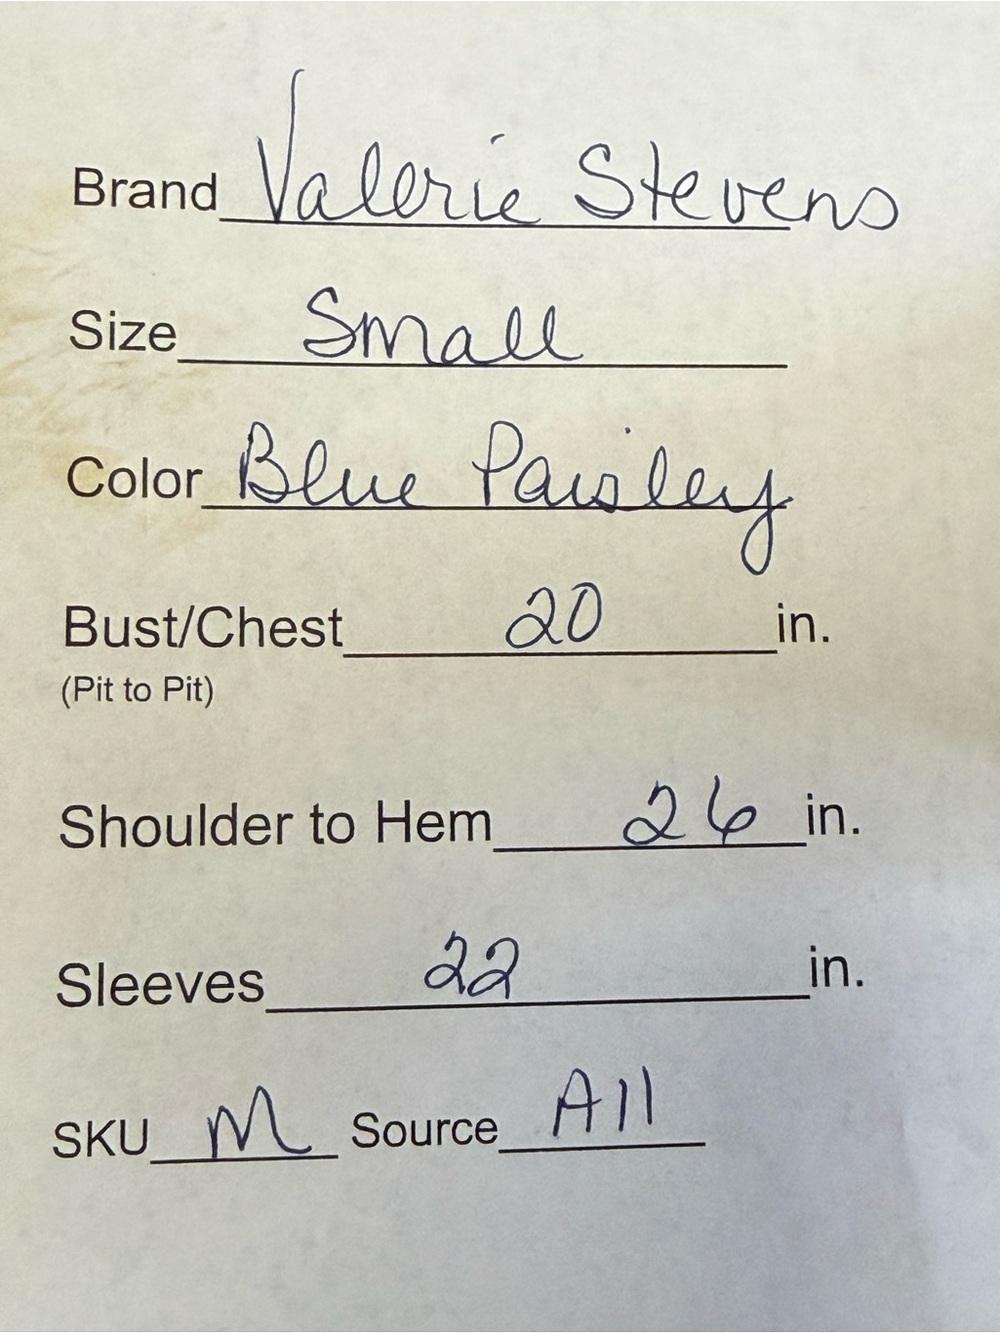 Brand Valerie Stevens
Size Small
Color Blue Paisley
Bust/Chest 20 in.
(Pit to Pit)
Shoulder to Hem 26 in.
Sleeves 22 in.
SKU M Source A11